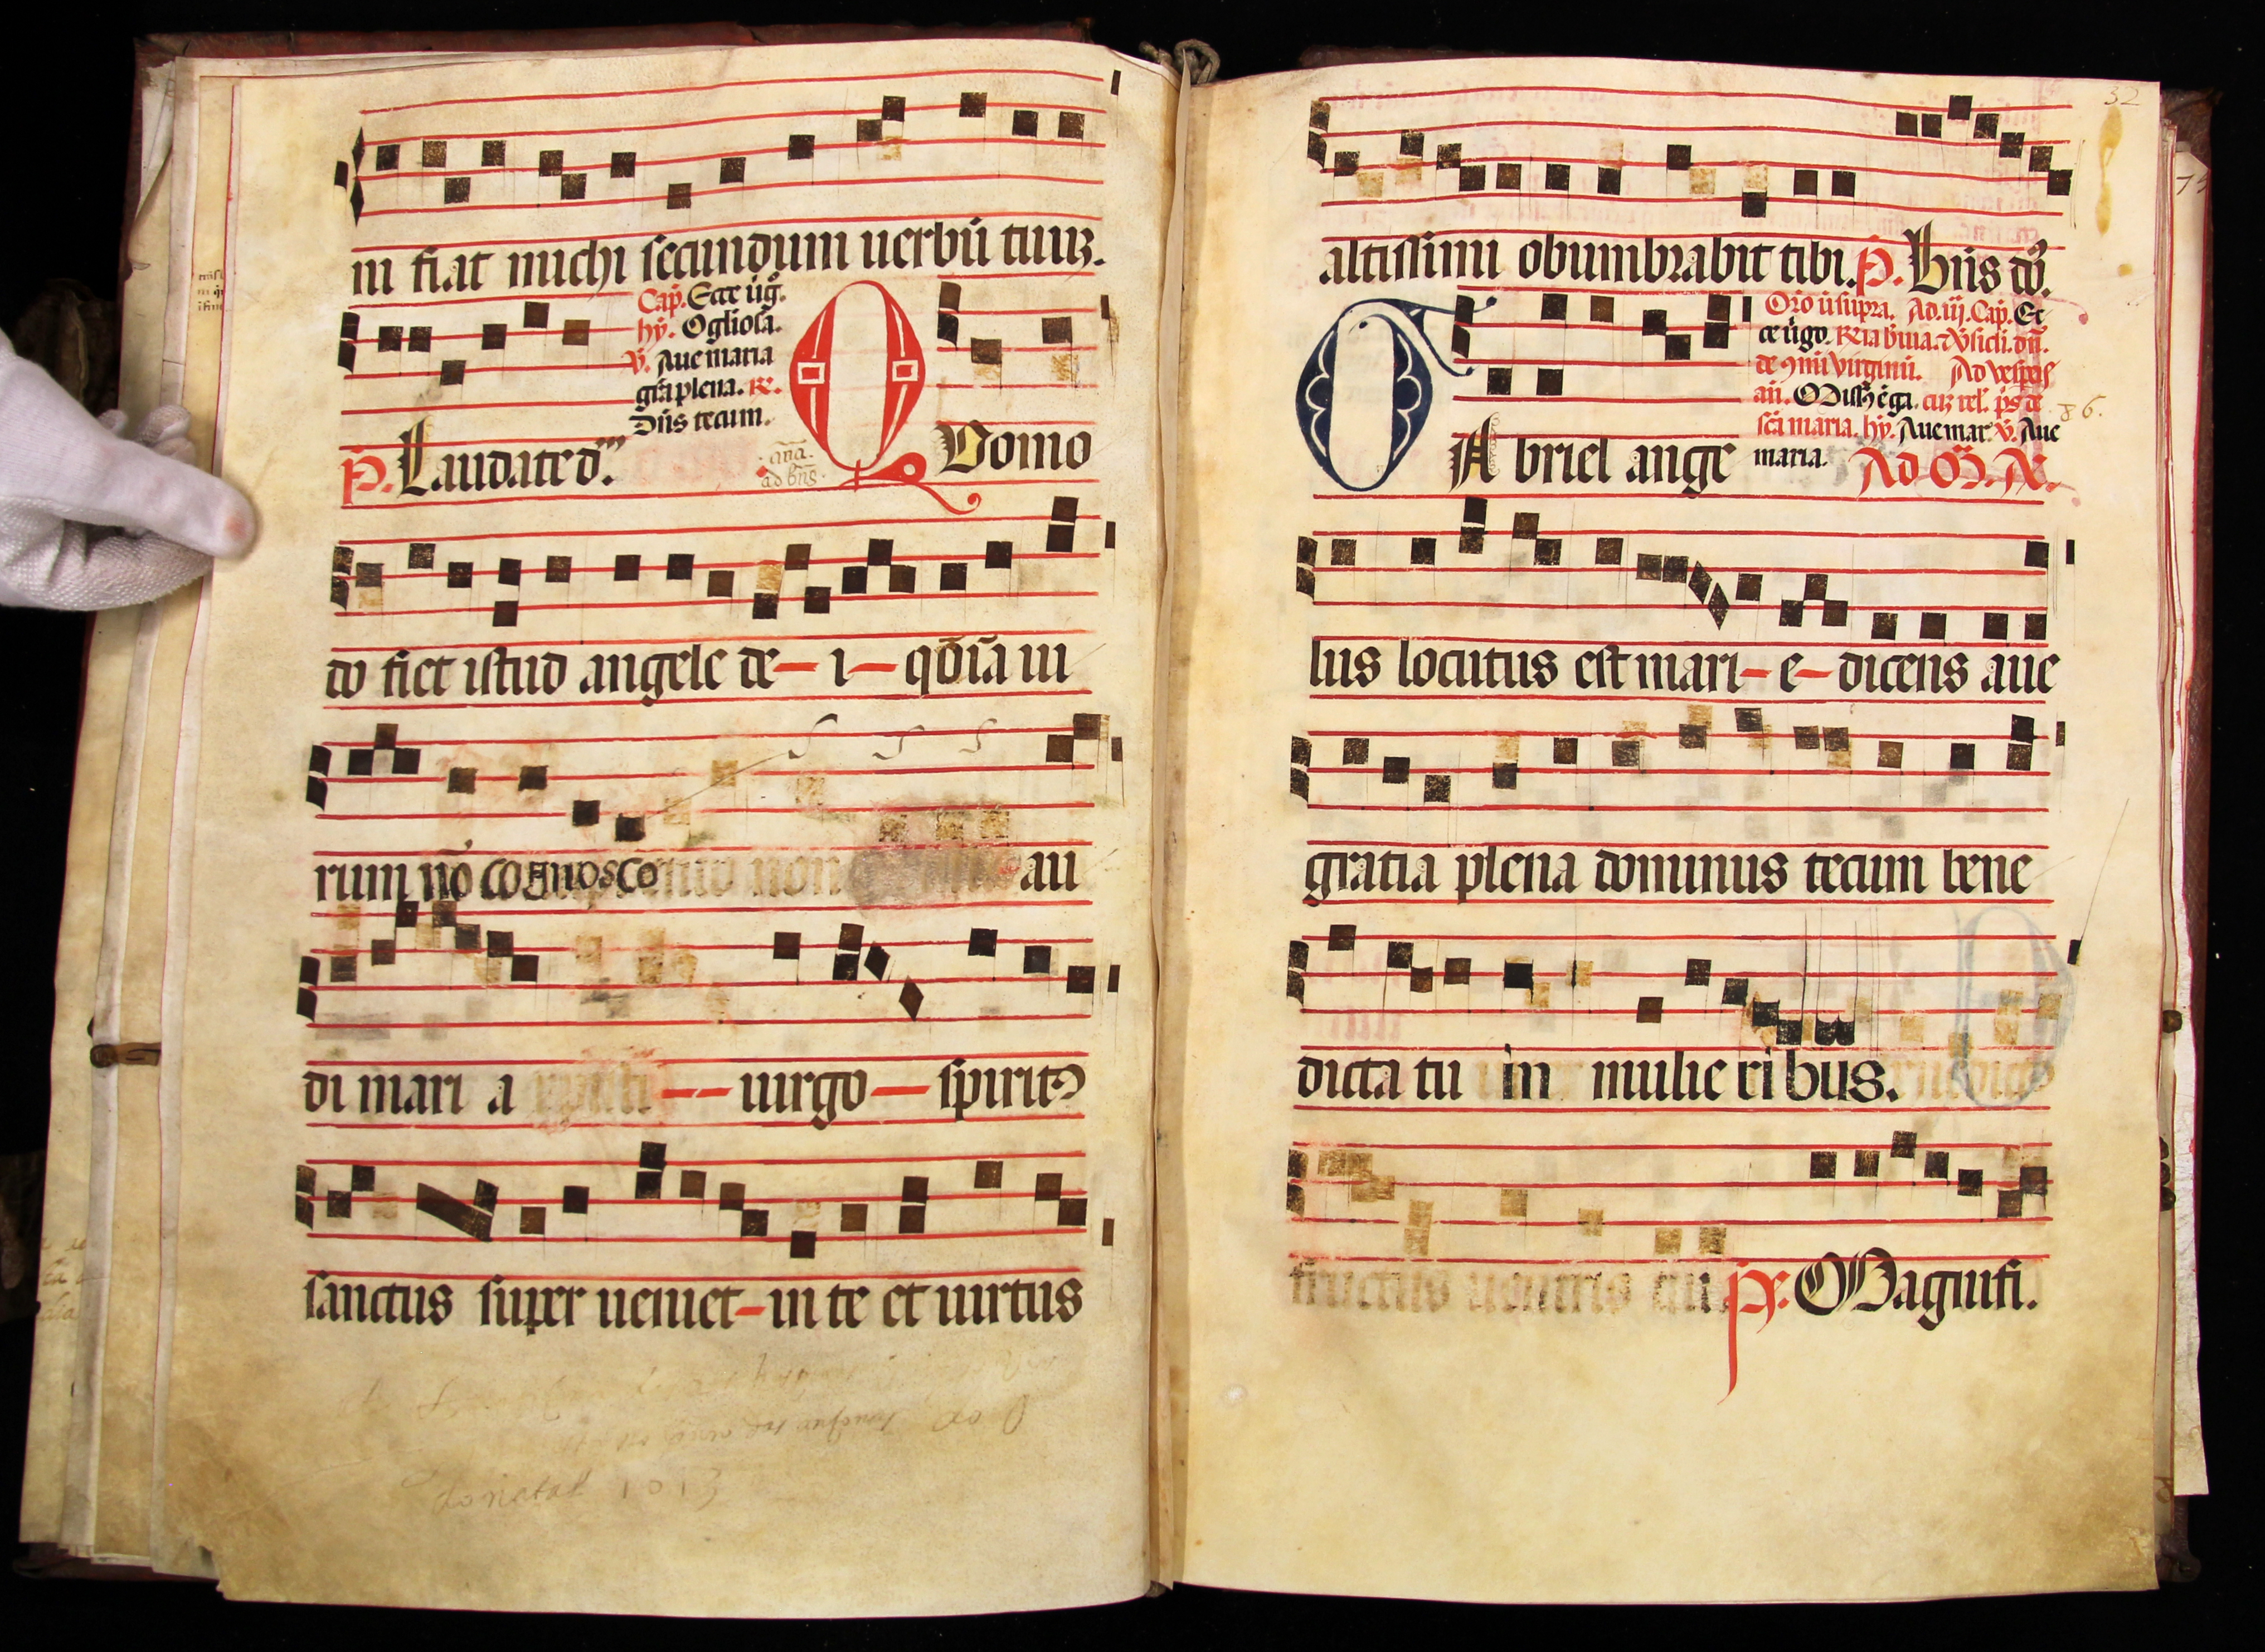 ni fiat michi secundum uerbū tuuʒ.
Cap̄. Ecce ūg̊.
hȳ. O gliosā.
v̄. Aue maria
gr̄a plena. ℞.
Dn̄s tecum.
P̄. Laudate d.
añā.
ad bn̄s.
Quomo
do fiet istud angele de i qōiā ui
rum nō cognosco au
di mari a uirgo spiritꝰ
sanctus super ueniet in te et uirtus
donetal 1013
32
altissimi obumbrabit tibi. P̄. Hiis dō.
Oro ūt supra. Ad .iij. Cap̄. Ec
ce ūgo.
de 9mūi virginū. Ad vesperis
añ. Missꝰ ē ga. cuʒ rel. ps̄ de
sc̄a maria. hȳ. Aue mar v̄. Aue
maria. Ad M̄. A.
86.
GAbriel ange
lus locutus est mari e dicens aue
gratia plena dominus tecum bene
dicta tu in mulie ri bus.
fructus uentris tui P̄. Magnifi.